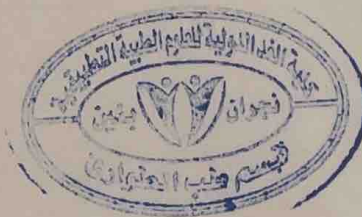 كلية الغد الدولية للعلوم الطبية التطبيقية
نجران
بنين
قسم طب الطوارئ